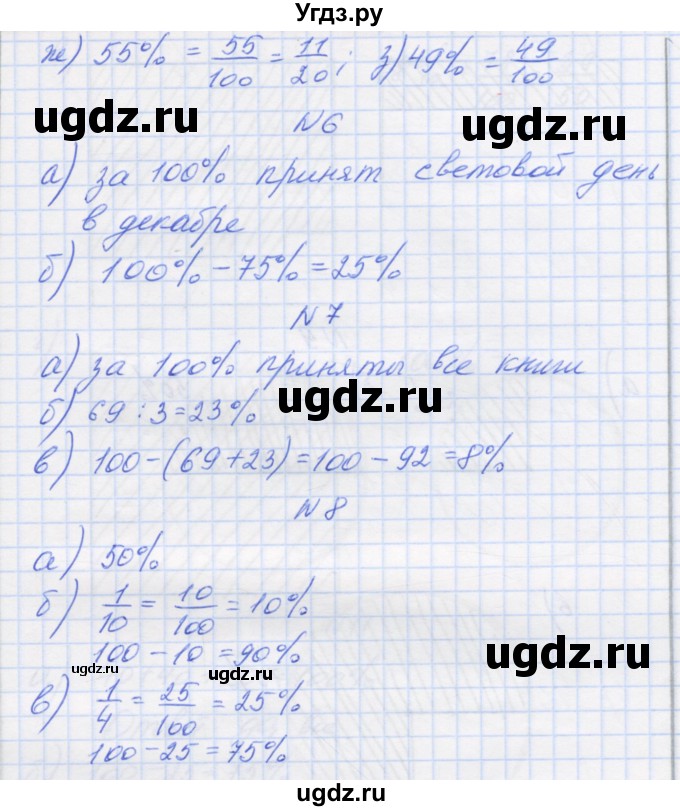 Угдз.ру
ж) 55% = 55/100 = 11/20; з) 49% = 49/100
ugdz.ru
ugdz.ru
N6
а) за 100% принят световой день
в декабре
ugdz.ru
б) 100% - 75% = 25%
N7
а) за 100% приняты все книги
ugdz.ru
б) 69 : 3 = 23%
в) 100 - (69 + 23) = 100 - 92 = 8%
N8
а) 50%
б) 1/10 = 10/100 = 10%
100 - 10 = 90%
ugdz.ru
ugdz.ru
ugdz.ru
в) 1/4 = 25/100 = 25%
100 - 25 = 75%
ugdz.ru
ugdz.ru